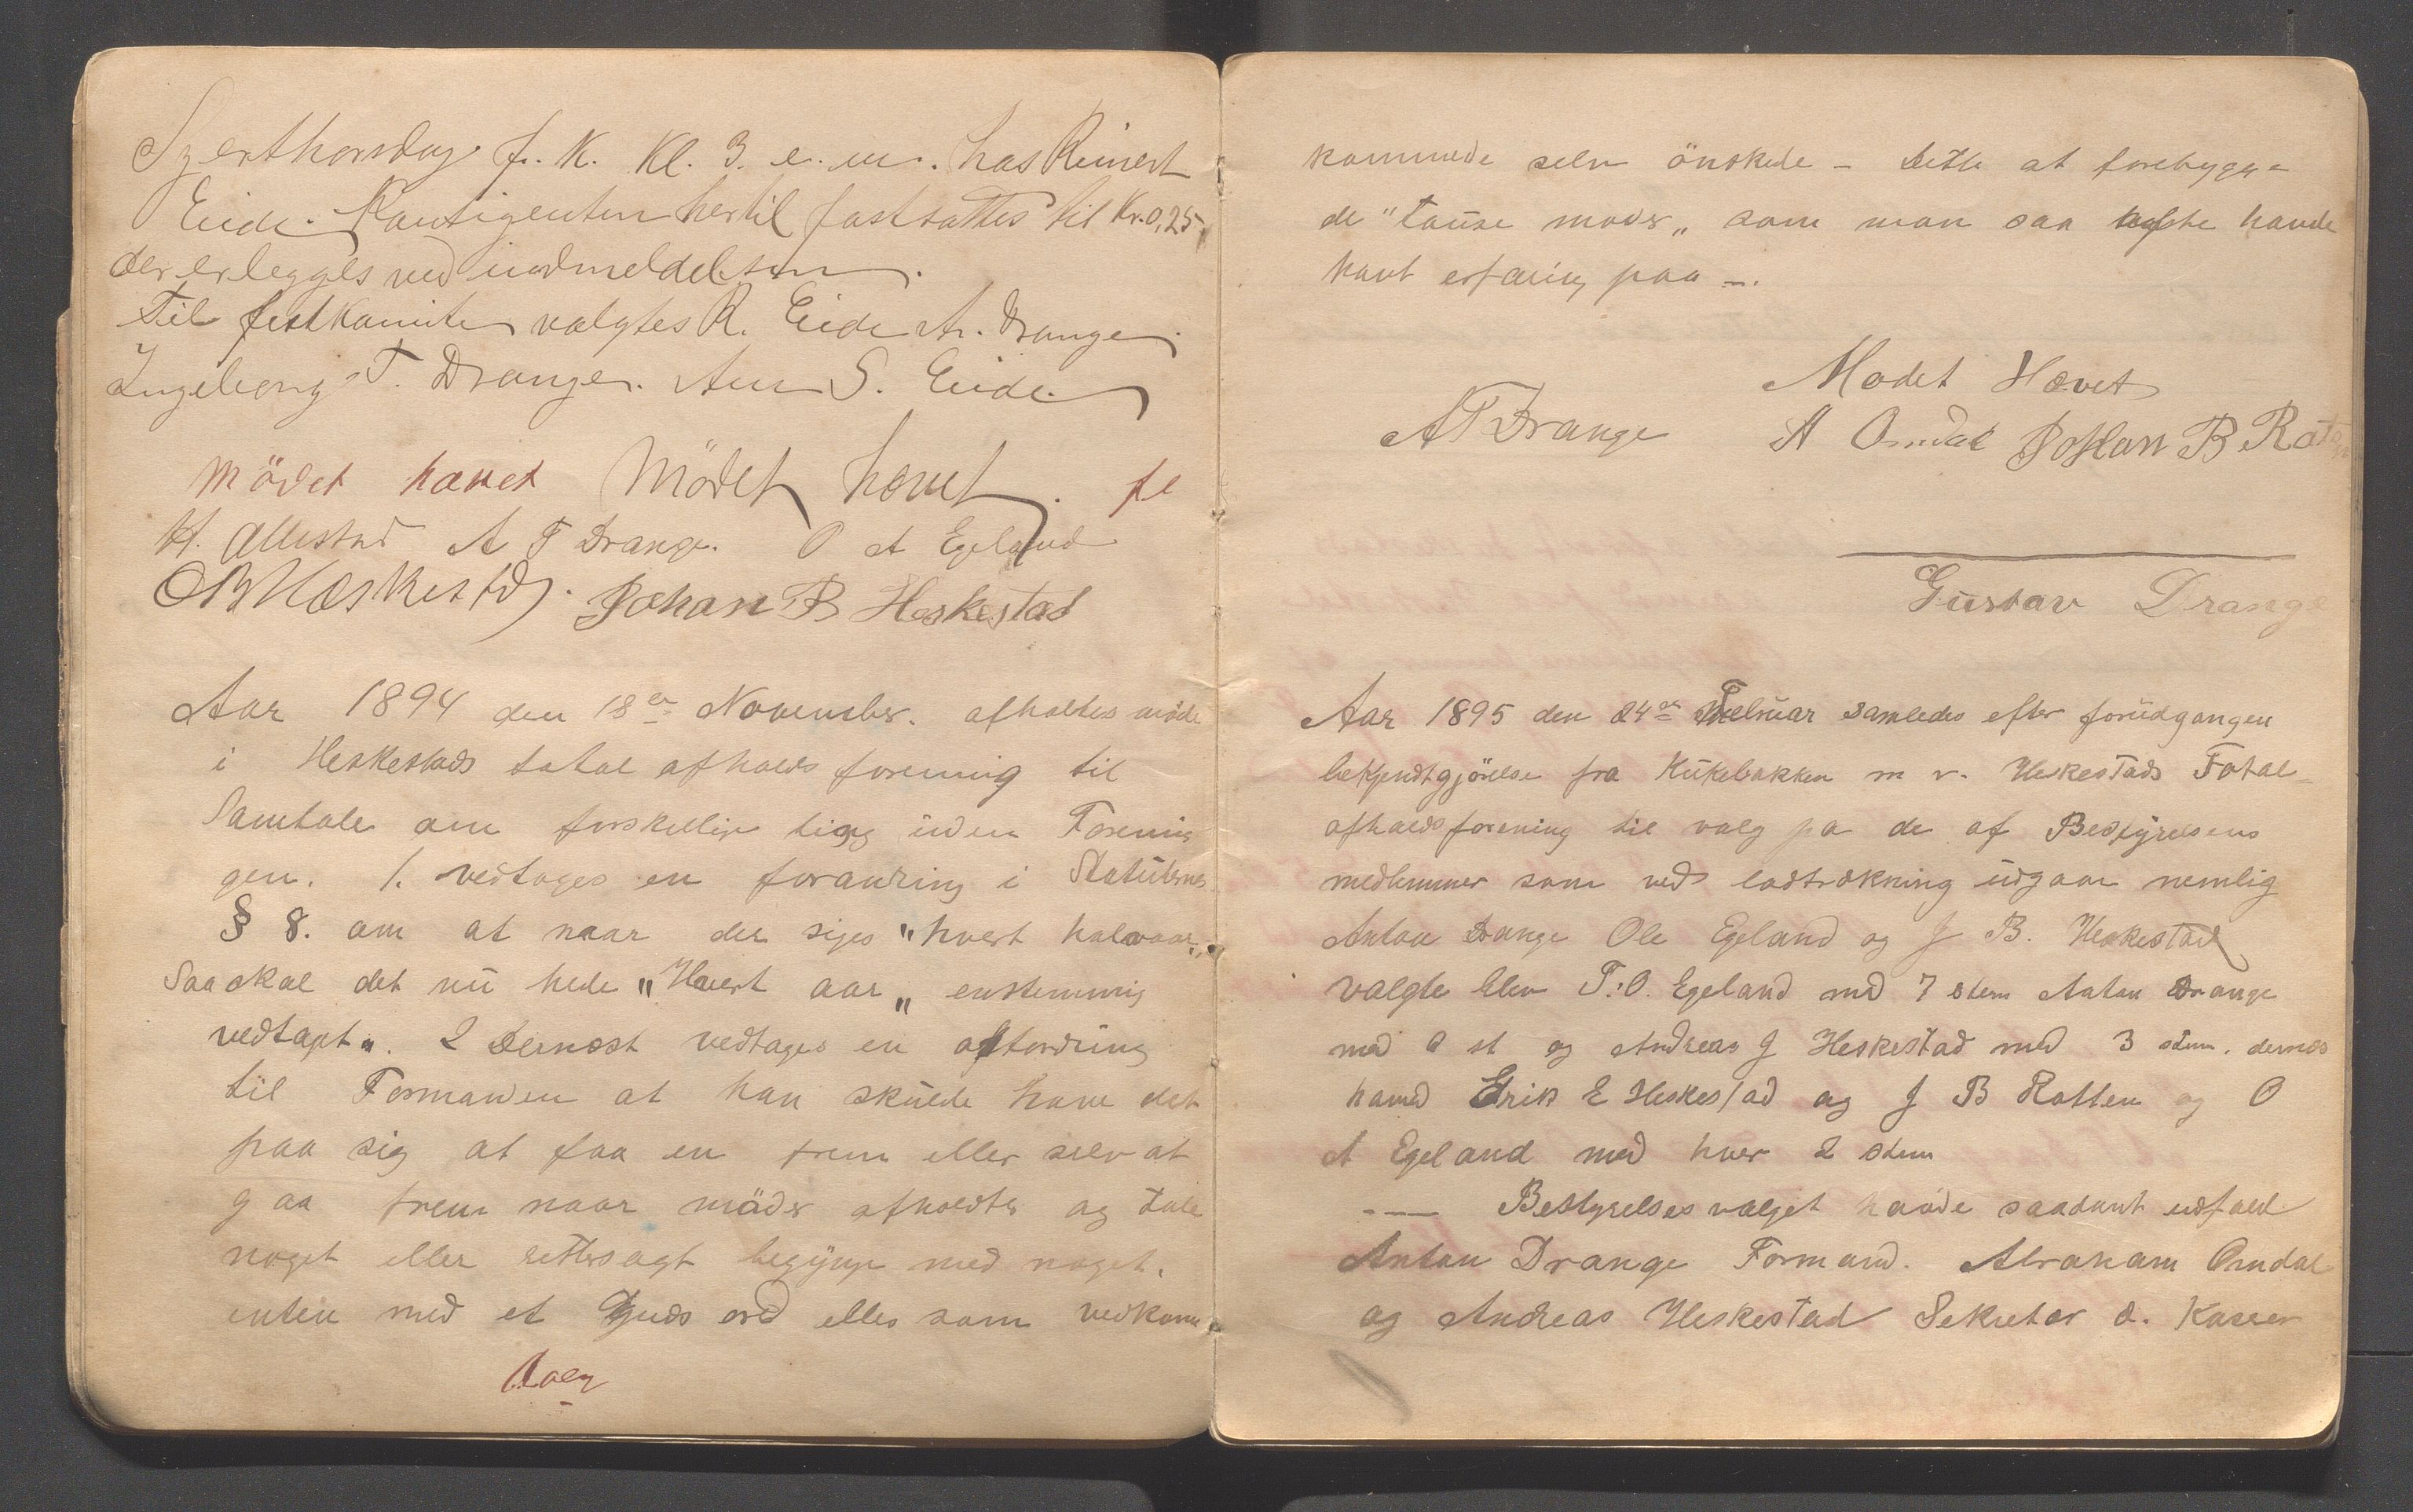 Sjerthorsdag f. K. Kl. 3. e. m. hos Reinert
Eide. Kontigenten hertil fastsattes til Kr. 0,25
der erlegges ved indmeldelsen.
Til festkomite valgtes R. Eide A. Drange
Ingeborg T. Drange. Ane S. Eide
Mödet hævet Mödet hævet. fe
H. Allestad A T Drange. O A Egeland
O B Heskestad. Johan B Heskestad
Aar 1894 den 18de November. afholtes möde
i Heskestads total afholds forening til
Samtale om forskellige ting inden Forenin
gen. 1. vedtoges en forandring i Statuternes
§ 8. om at naar der siges "hvert halvaar"
Saa skal det nu hede "Hvert aar" enstemmig
vedtagt. 2 Dernæst vedtages en opfordring
til Formanden at han skulde have det
paa sig at faa en frem eller selv at
gaa frem naar möder afholdtes og tale
noget eller rettersagt begynge med noget.
enten med et Guds ord elles som vedkom
kommede selv önskede - dette at forebygge=
de "tause moder" som man saa ofte havde
havt erfaring paa -.
Modet Hævet
A T Drange A Omdal Johan B Raten
Gustav Drange
Aar 1895 den 24de Februar samledes efter forudgangen
bekjendtgjörelse fra Kirkebakken m v. Heskestads Total
afholdsforening til valg pa de af Bestyrelsens
medlemmer som ved lodtrækning udgaar nemlig
Anton Drange Ole Egeland og J B. Heskestad
valgte blev T. O. Egeland med 7 stem Anton Drange
med 6 st og Andreas J Heskestad med 3 stem. dernæs
havd Erik E Heskestad og J B Ratten og O
A Egeland med hver 2 stem
--- Bestyrelses valget havde saadant udfald
Anton Drange Formand. Abraham Omdal
og Andreas Heskestad Sekretær o. Kasser